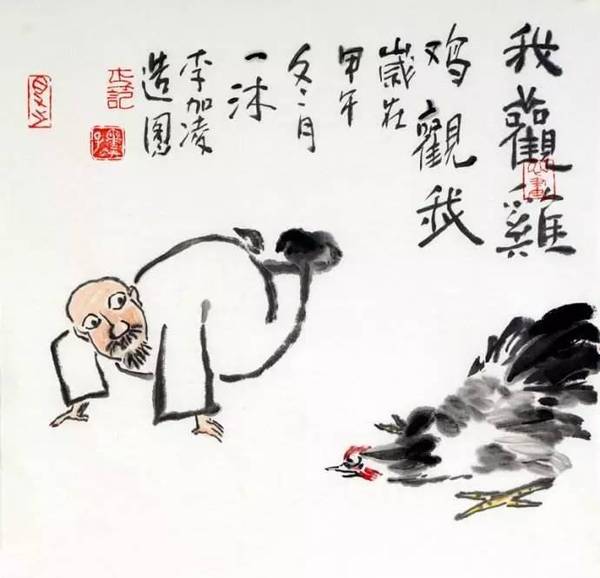 我觀雞
鸡觀我
歲在
甲午
冬月
一沐
李加凌
造圖